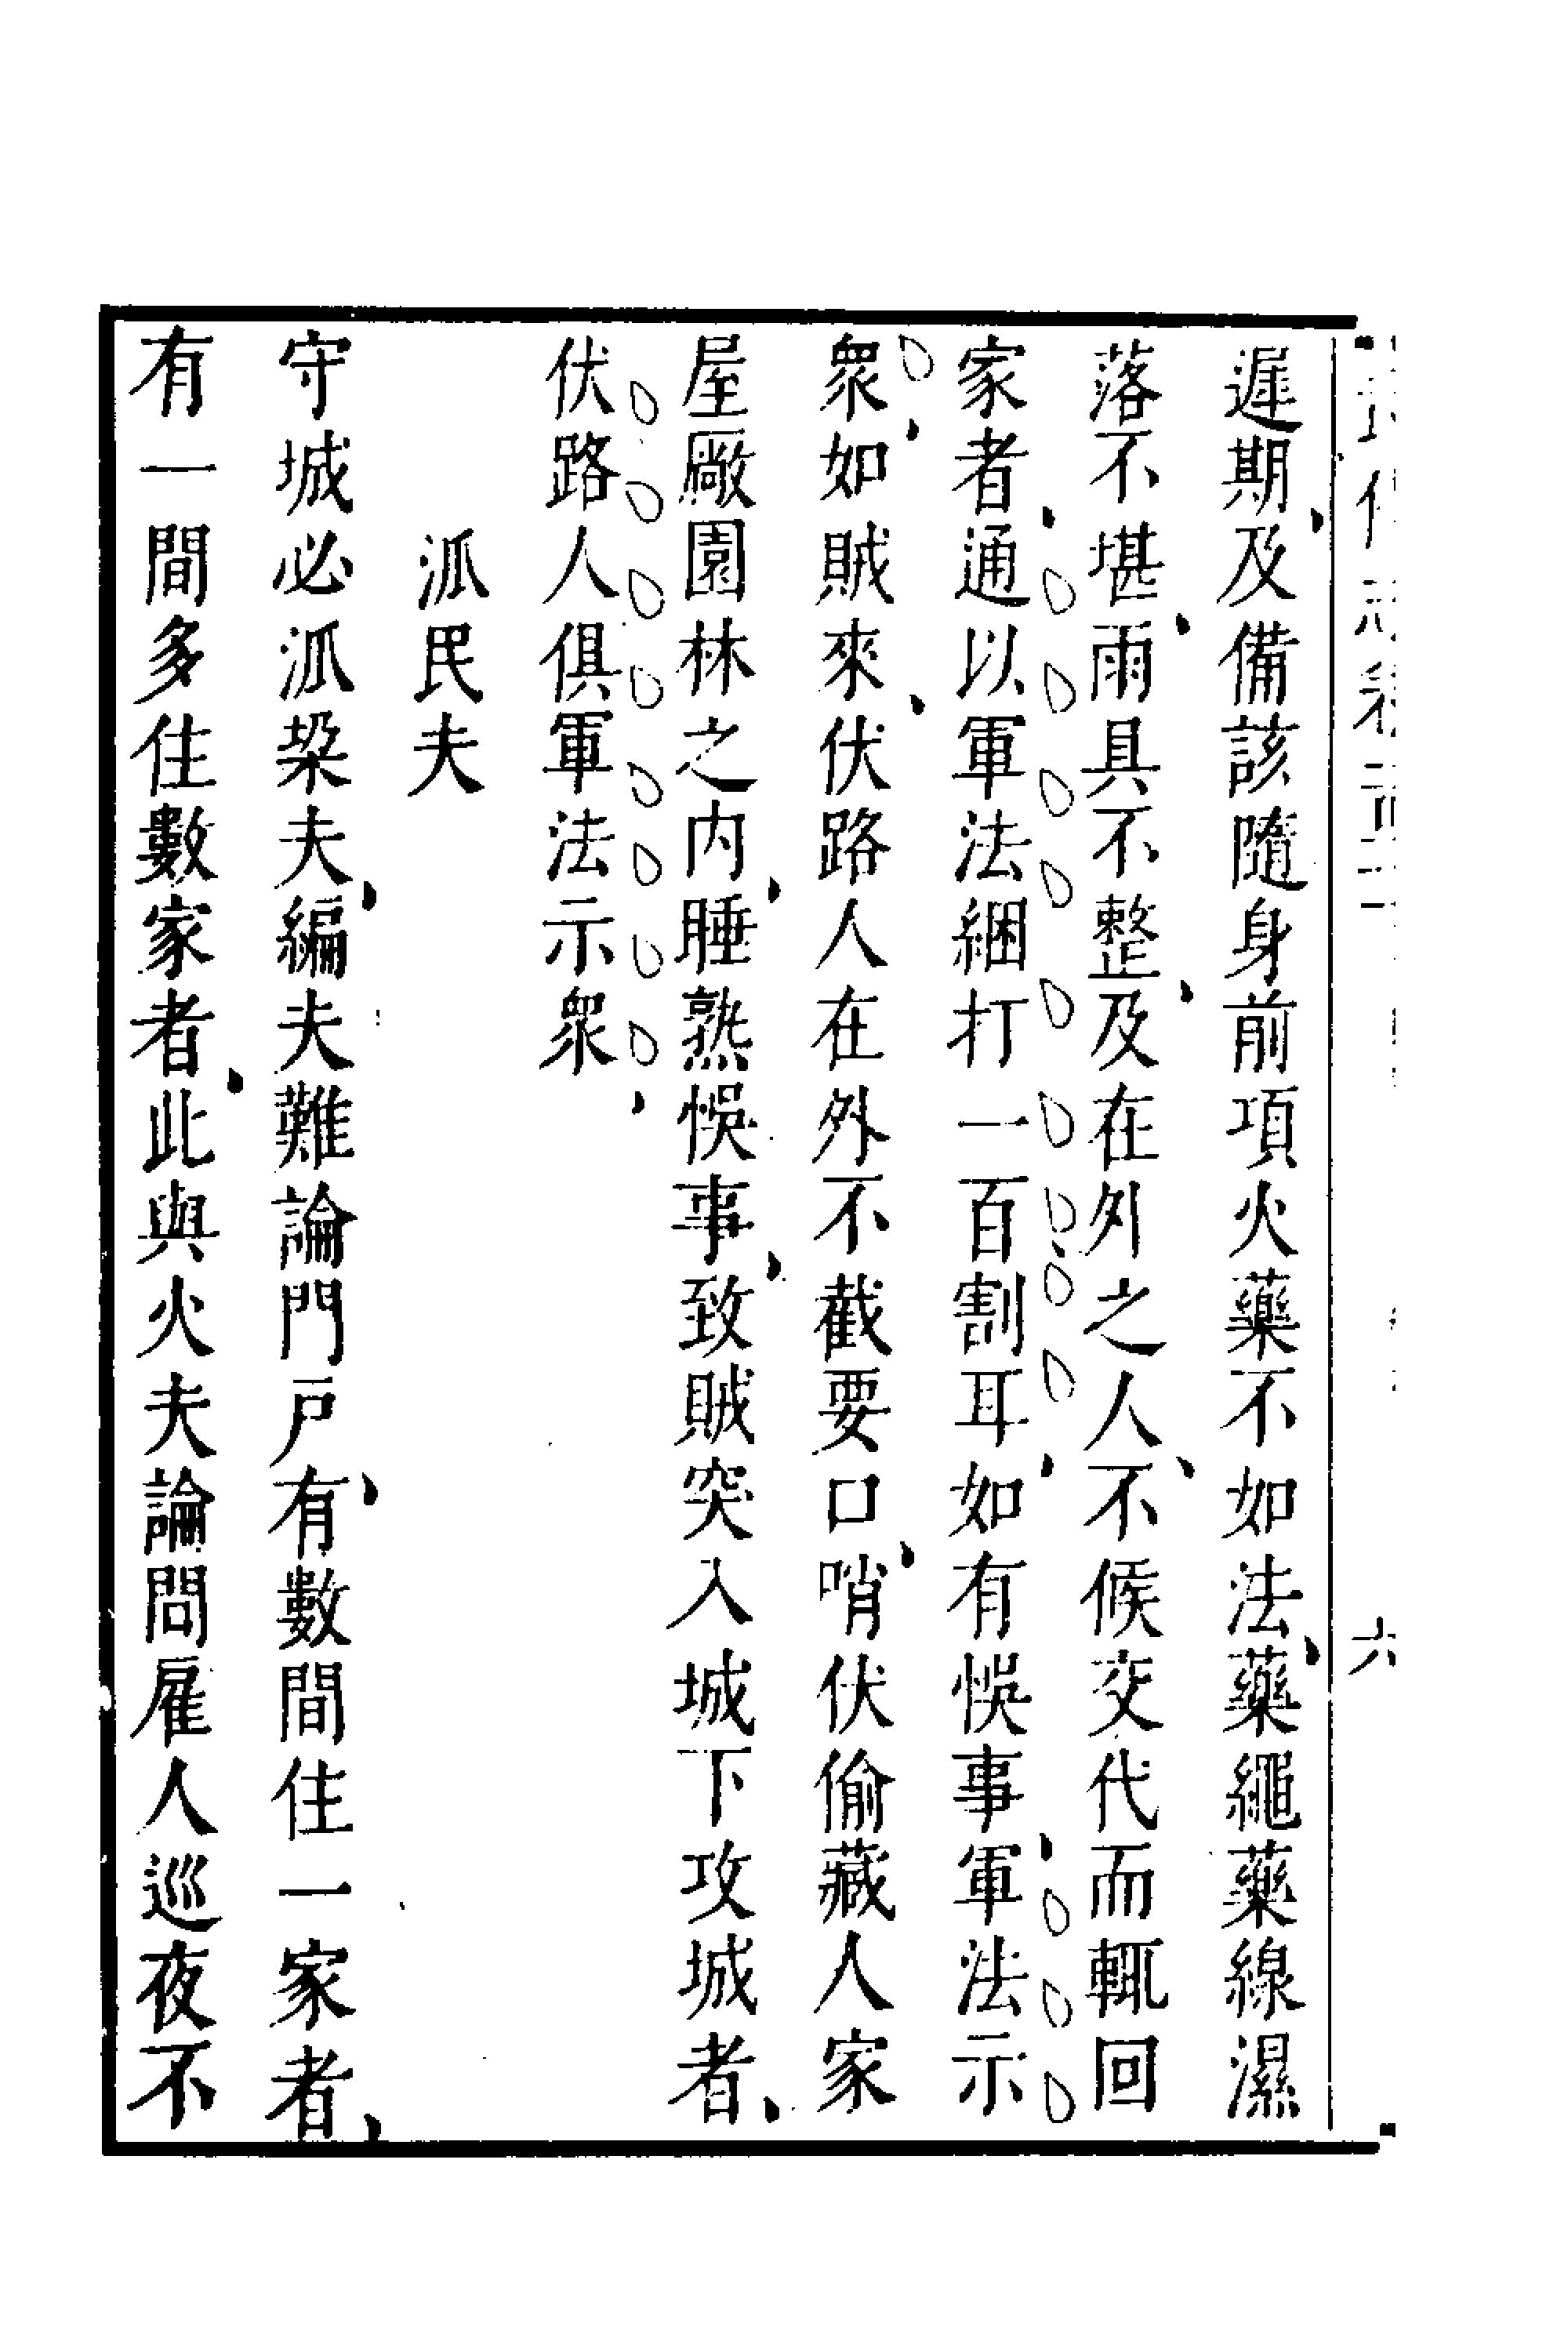 遲期及備該隨身前項火藥不如法藥繩藥線濕
落不堪雨具不整及在外之人不候交代而輒回
家者通以軍法綑打一百割耳如有悞事軍法示
衆如賊來伏路人在外不截要口哨伏偷藏人家
屋廠園林之内睡熟悞事致賊突入城下攻城者
伏路人俱軍法示衆
派民夫
守城必派垜夫編夫難論門戸有數間住一家者
有一間多住數家者此與火夫論問雇人巡夜不
六